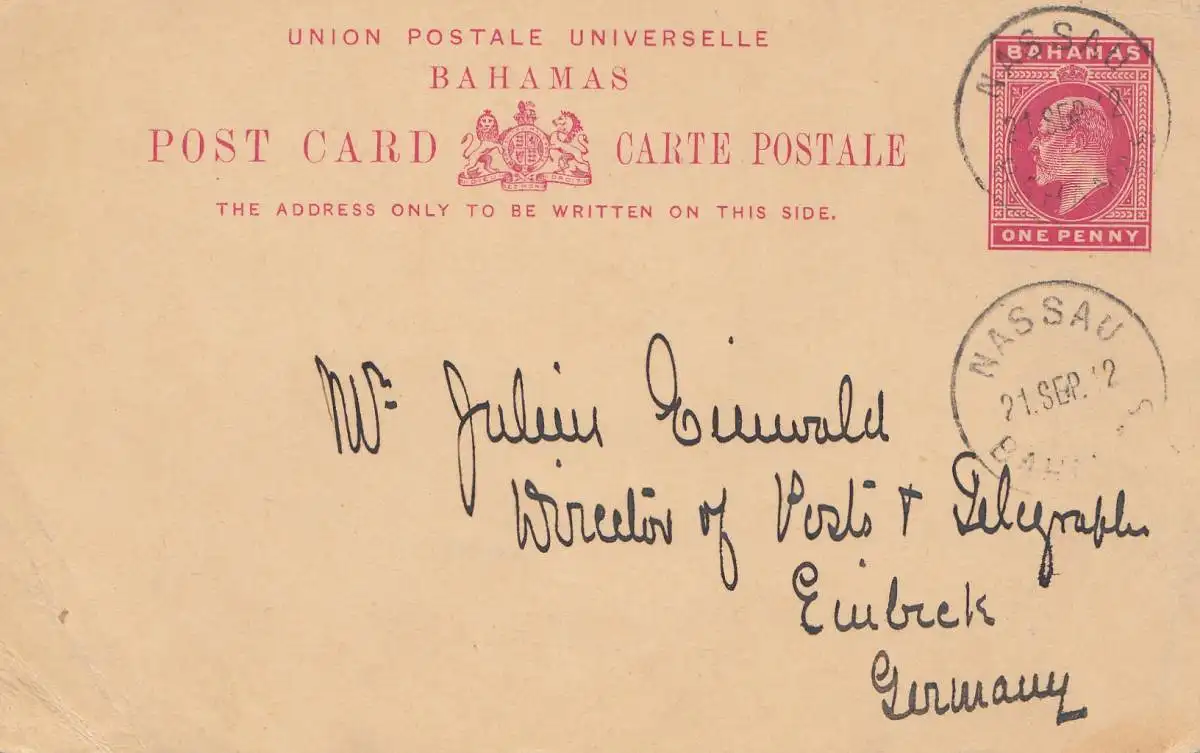 UNION POSTALE UNIVERSELLE
BAHAMAS
POST CARD CARTE POSTALE
THE ADDRESS ONLY TO BE WRITTEN ON THIS SIDE.
BAHAMAS
ONE PENNY
NASSAU
21 SEP. '2
NASSAU
21. SEP. '2
Mr. Julius Einwald
Director of Posts & Telegraphs
Einbeck
Germany